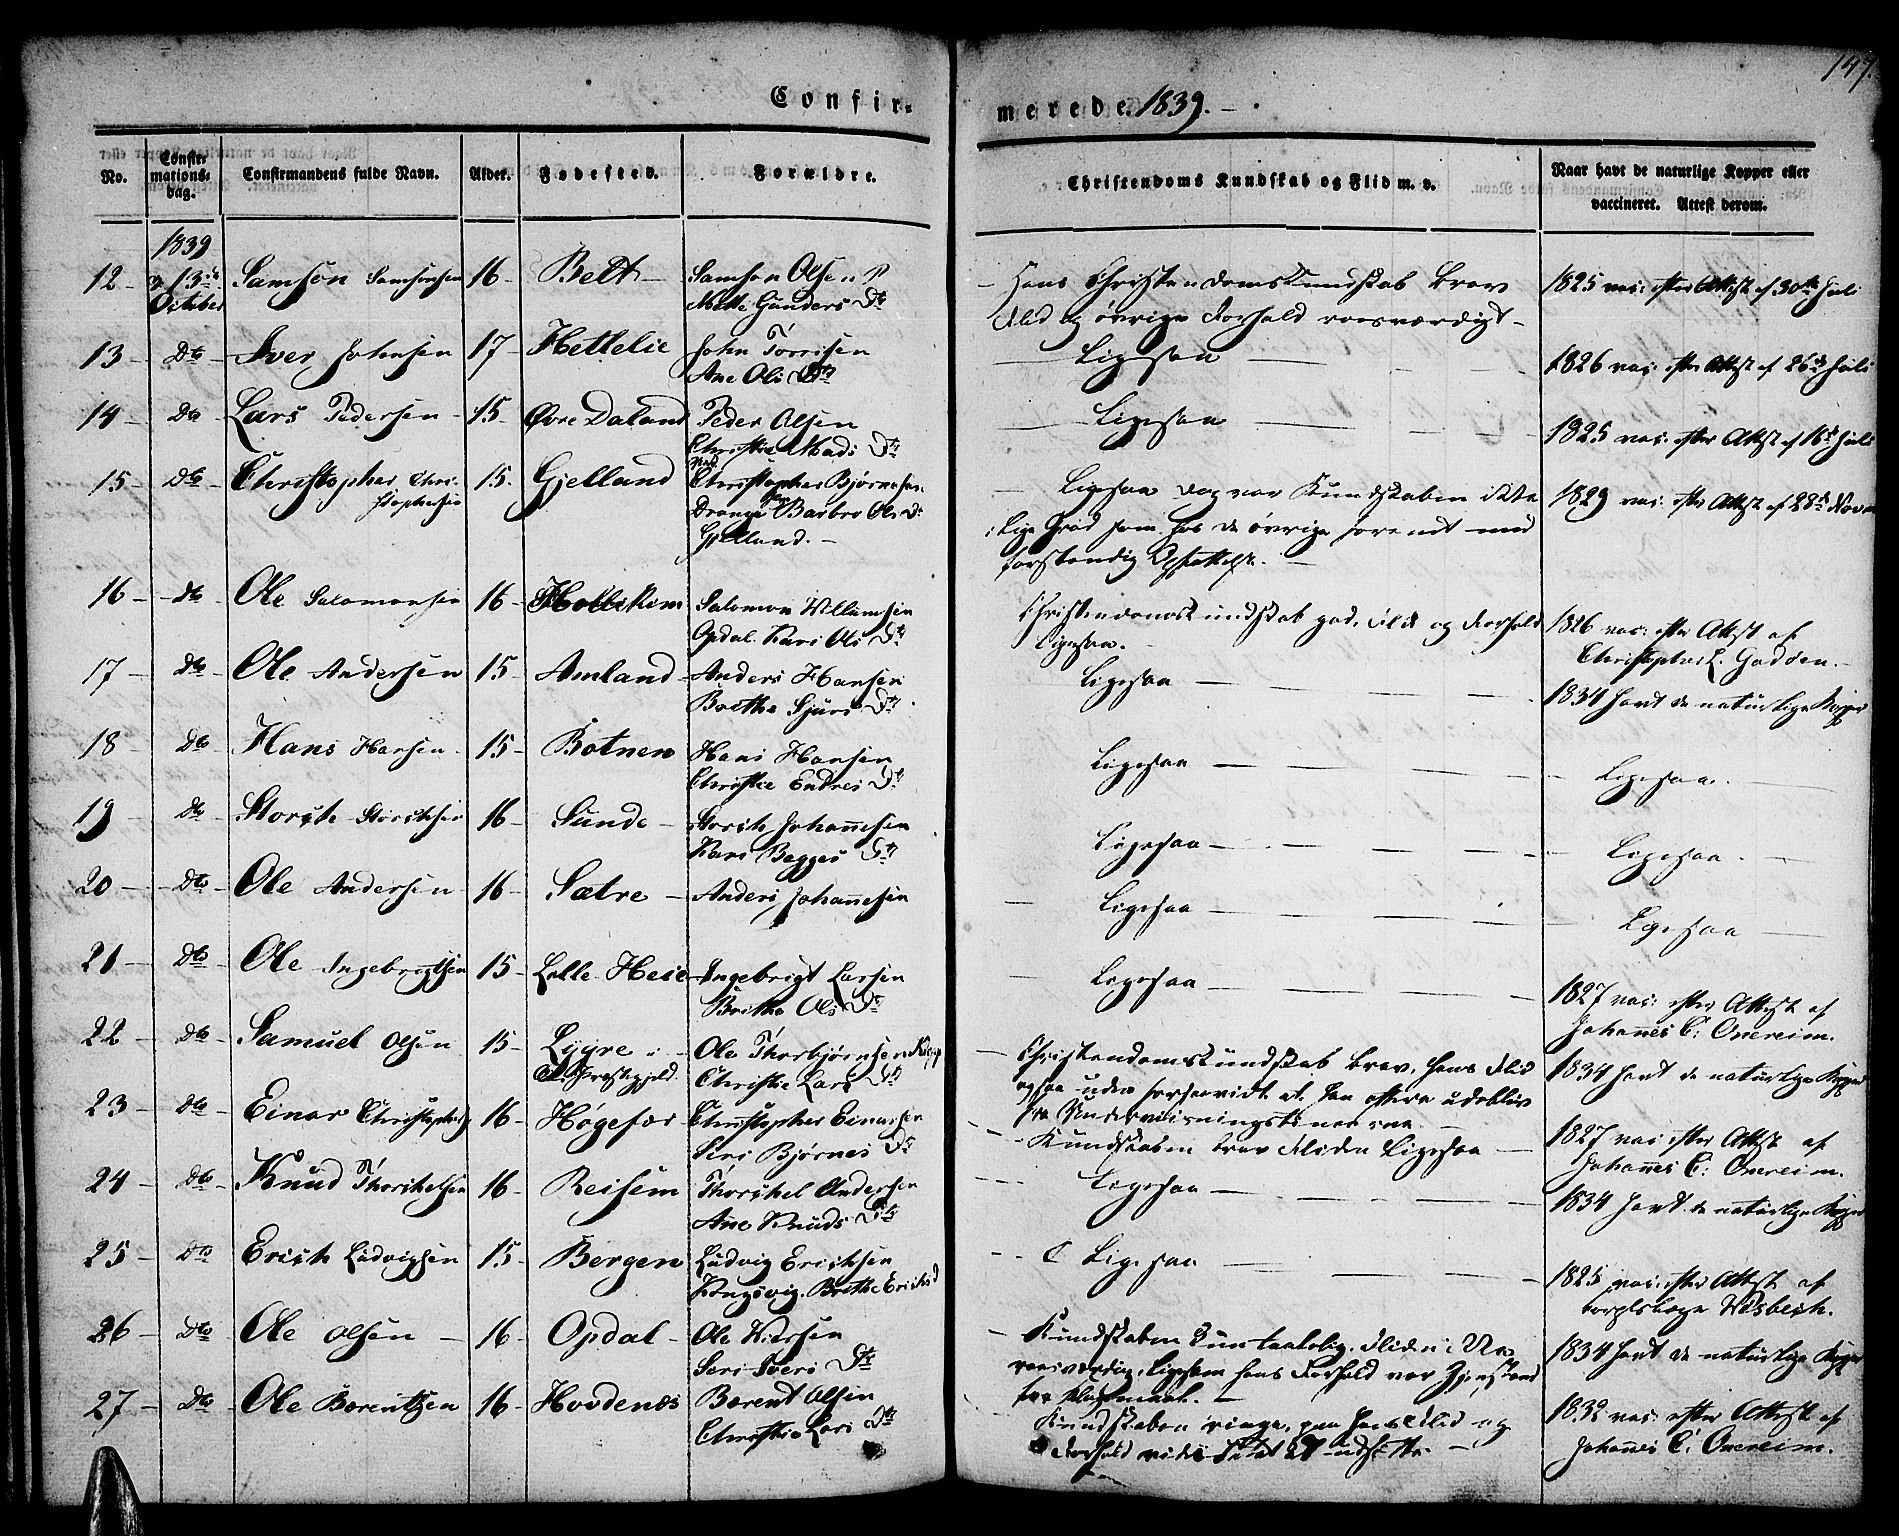 147.
Confir-
merede 1839.
No.
Confirmationsdag.
Confirmandens fulde Navn.
Alder.
Fødested.
Forældre.
Christendoms Kundskab og Flid m. v.
Naar havt de naturlige Kopper eller vaccineret. Attest derom.
1839
12 - 13de October Samson Samsonsen 16 - Belt - Samson Olsen
Mette Gunders Dtr
Hans Christendomskundskab brav
Flid og øvrige Forhold roesværdigt -
1825 vac: efter Attest af 30te Juli
13 - Do Iver Johnsen 17 - Hettelie John Torrisen
Ane Ols Dtr
Ligesaa
1826 vac: efter Attest af 26de Juli
14 - Do Lars Pedersen 15 - Øvre Daland Peder Olsen
Christie Mads Dtr
Ligesaa
1825 vac: efter Attest af 16de Juli
15 - Do Christopher Christophersen 15 - Gjelland Christopher Bjørnesen
Drange Barbro Ols Dr
Gjelland. -
Ligesaa dog var Kundskaben ikke
i lige Grad som hos de øvrige forenet med
forstandig
1829 vac: efter Attest af 28de Novem
16 - Do Ole Salomonsen 16 - Salomon Willumsen
Opdal. Kari Ols Dtr
Christendomskundskab god, Flid og Forhold
Ligesaa. -
1826 vac: efter Attest af
Christopher L. Godøen. -
17 - Do Ole Andersen 15 - Amland - Anders Hansen
Brethe Sjurs Dtr
Ligesaa
1834 havt de naturlige Kopper
18 Do Hans Hansen 15 - Botnen Hans Hansen
Christie Endres Dtr
Ligesaa
Ligesaa.
19 Do Storch Storchsen 16 - Sunde - Storch Johannesen
Kari Bagges Dtr
Ligesaa
Ligesaa.
20 - Do Ole Andersen 16 - Sætre - Anders Johannesen
Ligesaa
Ligesaa
21 - Do Ole Ingebrigtsen 15 - Lille Heie Ingebrigt Larsen
Britha Ols Dtr
Ligesaa
1827 vac: efter Attest af
Johannes C: Onereim.
22 - Do Samuel Olsen 15 - Lygre i
Præstegjeld. Ole Thorbjørnsen
Christie Lars Dtr
Christendomskundskab brav, hans Flid
ogsaa uden forsaavidt at han oftere udeblev
fra Underviisningstimerne.
1834 havt de naturlige Kopper
23 - Do Einar Christophers 16 - Høgefær Christopher Einarsen
Siri Bjørnes Dtr
Kundskaben brav Fliden Ligesaa
1827 vac: efter Attest af
Johannes C: Onereim.
24 - Do Knud Thorchelsen 16 - Reisem Thorchel Andersen
Ane Knuds Dtr
Ligesaa
1834 havt de naturlige Kopper
25 - Do Erich Ludvigsen 15 - Bergen Ludvig Erichsen
Kongsvig. Brethe Erichsd
Ligesaa
1825 vac: efter Attest af
Corpslæge Wisbech.
26 - Do Ole Olsen - 16 - Opdal - Ole Nilssen
Seri Ivers Dtr
Kundskaben kun taalelig. Fliden
roesværdig, ligesom hans Forhold var Gjenstand
1834 havt de naturlige Kopper
27 - Do Ole Børentsen 16 - Hovdenæs Bærent Olsen
Christie Lars Dtr
Kundskaben ringe, paa hans Flid og
Forhold
1832 vac: efter Attest af
Johannes C: Onereim.